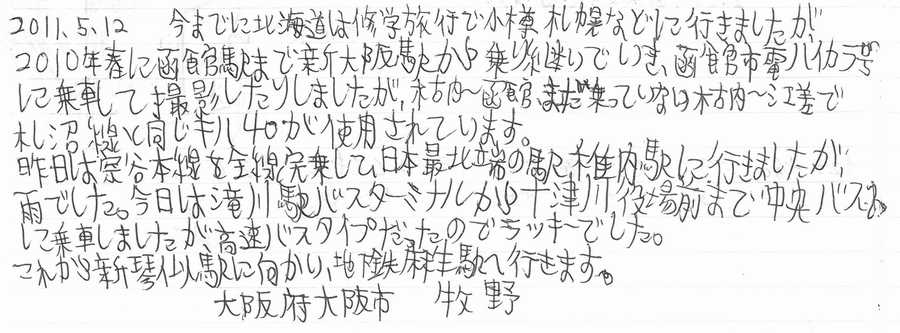 2011.5.12 今までに北海道は修学旅行で小樽札幌などに行きましたが、
2010年春に函館駅まで新大阪駅から乗り継いでいき、函館市電ハイカラ號
に乗車して撮影したりしましたが、木古内〜函館まだ乗っていない木古内〜江差で
札沼線と同じキハ40が使用されています。
昨日は宗谷本線を全線完乗して、日本最北端の駅稚内駅に行きましたが、
雨でした。今日は滝川駅バスターミナルから十津川役場前まで中央バス
に乗車しましたが高速バスタイプだったのでラッキーでした。
これから新琴似駅に向かい、地下鉄麻生駅へ行きます。
大阪府大阪市 牧野